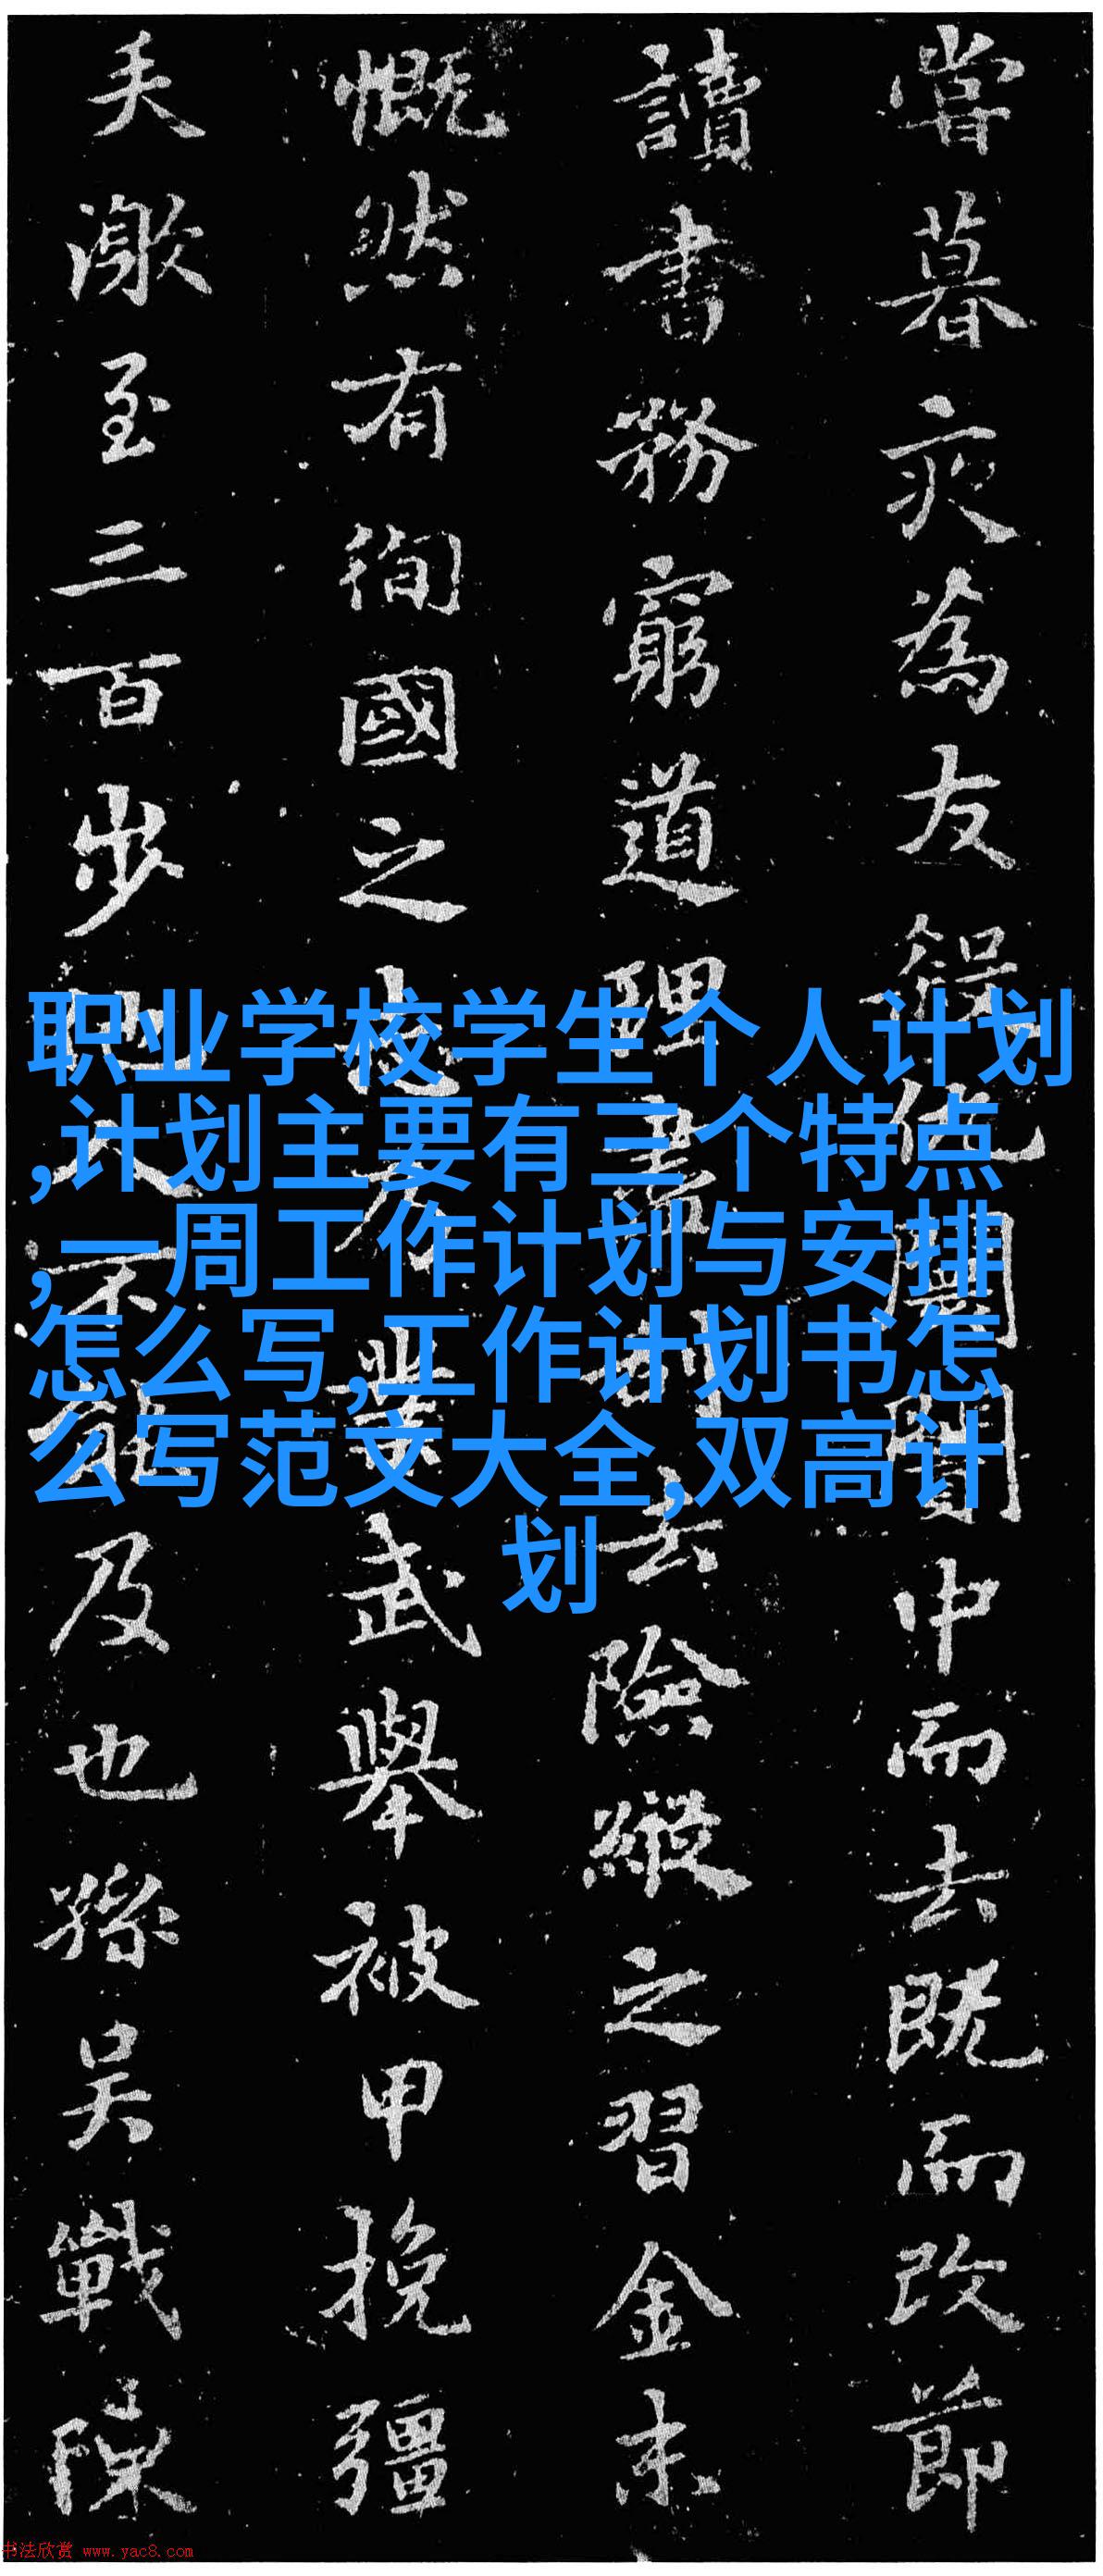 嘗暮亥為友
中而去既而改節
讀書務窮道理
去險縱之習金末
慨然有徇國之
武舉被甲挽彊
矢激至三百步
不能及也孫吴戰陳
职业学校学生个人计划
,计划主要有三个特点
,一周工作计划与安排
怎么写,工作计划书怎
么写范文大全,双高计
划
书法欣赏 www.yac8.com